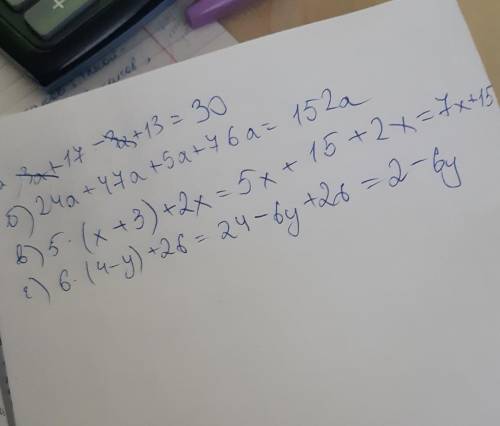 3a+17 -3a+13 = 30
б) 24a+47a+5a+76a= 152a
в) 5·(x+3)+2x=5x+15+2x=7x+15
г) 6·(4-y)+26=24-6y+26=2-6y